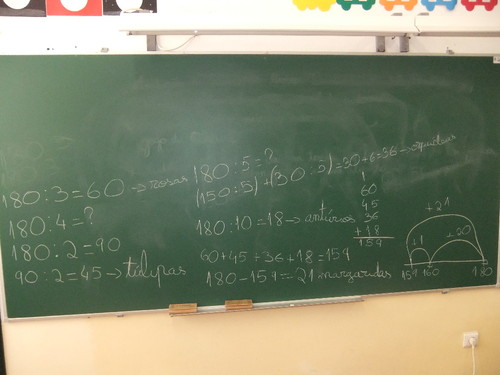 180:3=60→rosas
180:4=?
180:2=90
90:2=45→túlipas
180:5=?
(150:5)+(30:5)=30+6=36→
180:10=18→antúrios
60+45+36+18=159
180-159=21 margaridas
1
60
45
36
+18
159
+21
+1 +20
159 160 180